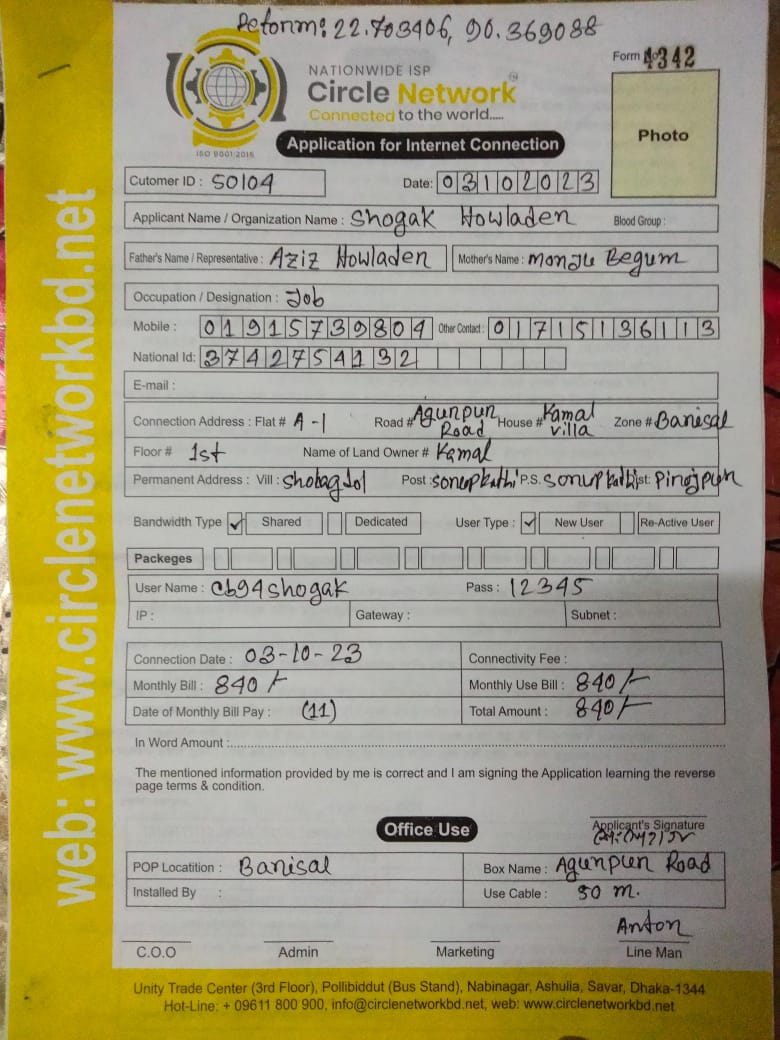 Peronm: 22.703406, 90.369088
Form No 4342
NATIONWIDE ISP
Circle Network
Connected to the world.....
ISO 9001:2015
Application for Internet Connection
Photo
Cutomer ID : 50104 Date: 03102023
Applicant Name / Organization Name : Shogak Howladen Blood Group :
Father's Name / Representative : Aziz Howladen Mother's Name : Monju Begum
Occupation / Designation : Job
Mobile : 01915739804 Other Contact : 01715136113
National Id: 3742754132
E-mail :
Connection Address : Flat # A-1 Road # Agunpun Road House # Kamal villa Zone # Banisal
Floor # 1st Name of Land Owner # Kamal
Permanent Address : Vill : Shobagdol Post : sonupkathi P.S. sonupkathi Dist: Pinojpun
Bandwidth Type ✓ Shared Dedicated User Type : ✓ New User Re-Active User
Packeges
User Name : cb94shogak Pass : 12345
IP : Gateway : Subnet :
Connection Date : 03-10-23 Connectivity Fee :
Monthly Bill : 840/- Monthly Use Bill : 840/-
Date of Monthly Bill Pay : (11) Total Amount : 840/-
In Word Amount :
The mentioned information provided by me is correct and I am signing the Application learning the reverse
page terms & condition.
Office Use
Applicant's Signature
POP Locatition : Banisal Box Name : Agunpun Road
Installed By : Use Cable : 50 m.
Anton
C.O.O Admin Marketing Line Man
Unity Trade Center (3rd Floor), Pollibiddut (Bus Stand), Nabinagar, Ashulia, Savar, Dhaka-1344
Hot-Line: + 09611 800 900, info@circlenetworkbd.net, web: www.circlenetworkbd.net
web: www.circlenetworkbd.net